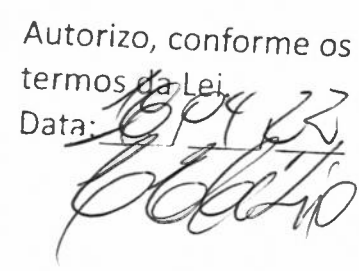 Autorizo, conforme os
termos da Lei
Data: 18/04/22